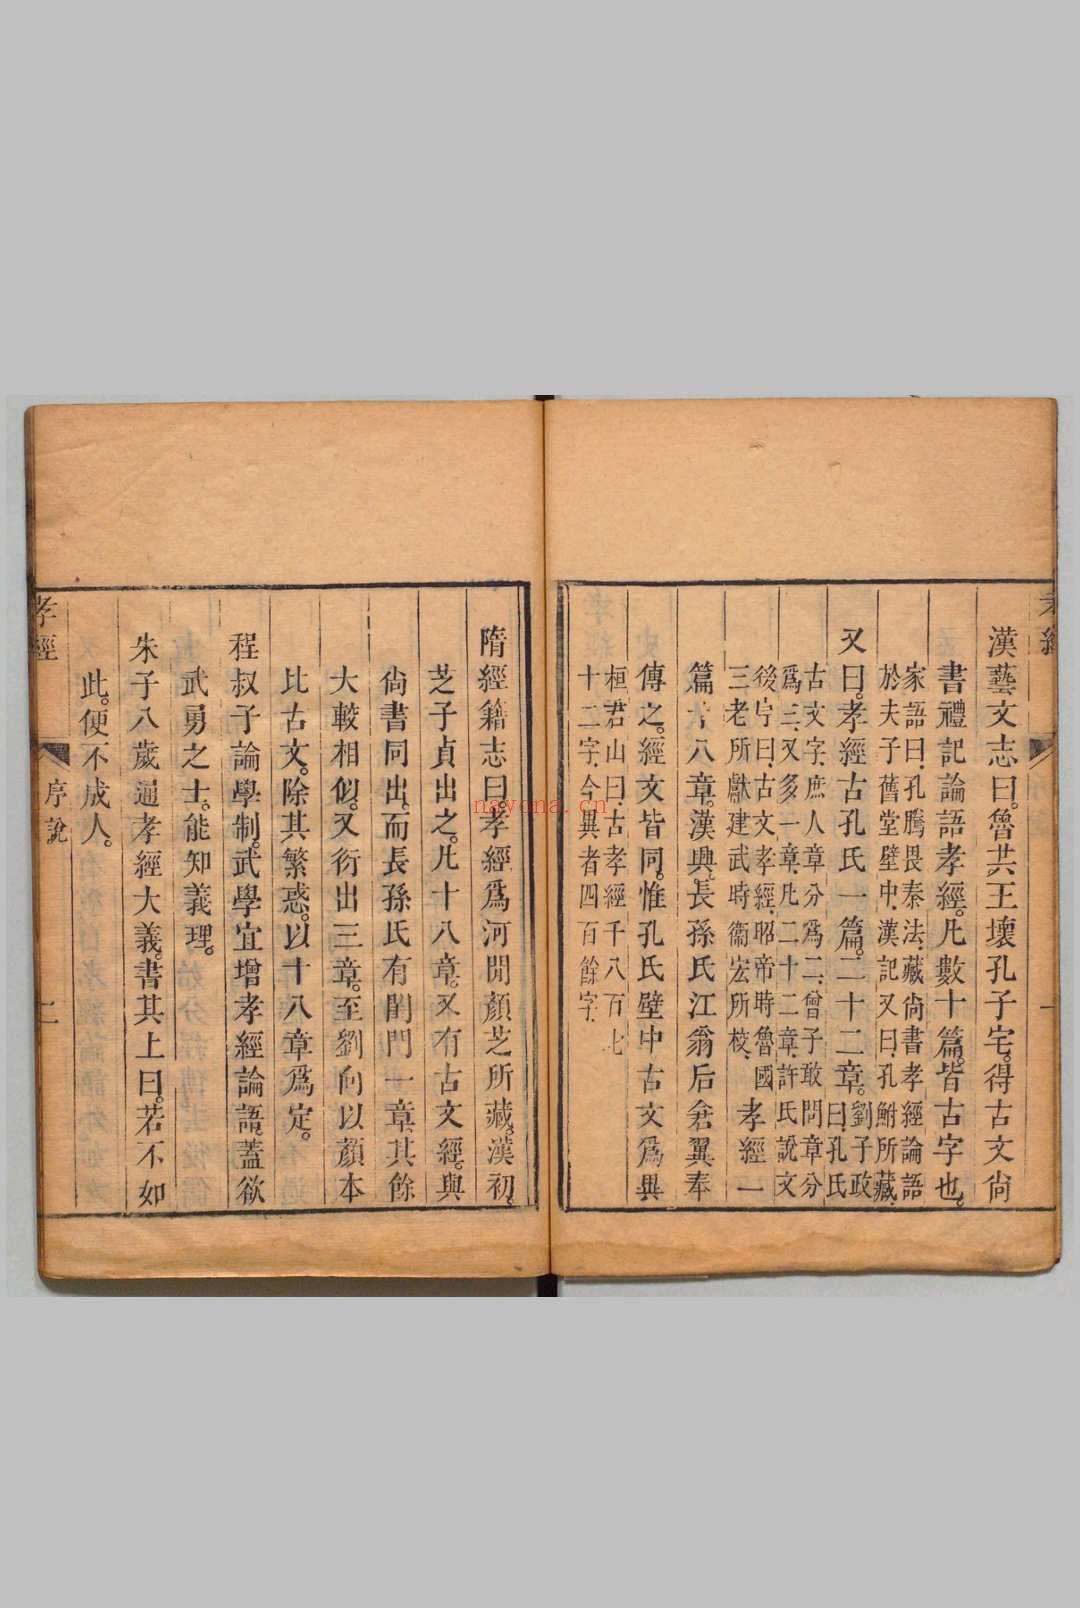 漢藝文志曰。魯共王壞孔子宅。得古文尙
書禮記論語孝經。凡數十篇。皆古字也。
家語曰、孔騰畏秦法、藏尙書孝經論語
於夫子舊堂壁中、漢記又曰、孔鮒所藏、
又曰。孝經古孔氏一篇。二十二章。
劉子政
曰、孔氏
古文字、庶人章分爲二、曾子敢問章分
爲三、又多一章、凡二十二章、許氏說文
後曰、古文孝經、昭帝時魯國
三老所獻、建武時衞宏所校、
孝經一
篇十八章。漢興。長孫氏江翁后倉翼奉
傳之。經文皆同。惟孔氏壁中古文爲異
桓君山曰、古孝經千八百七
十二字、今異者四百餘字、
孝經
一
隋經籍志曰。孝經爲河閒顏芝所藏。漢初。
芝子貞出之。凡十八章。又有古文經。與
尙書同出。而長孫氏有閨門一章。其餘
大較相似。又衍出三章。至劉向以顏本
比古文。除其繁惑。以十八章爲定。
程叔子論學制。武學宜增孝經論語。蓋欲
武勇之士。能知義理。
朱子八歲通孝經大義。書其上曰。若不如
此。便不成人。
孝經
序說
二
nayona.cn